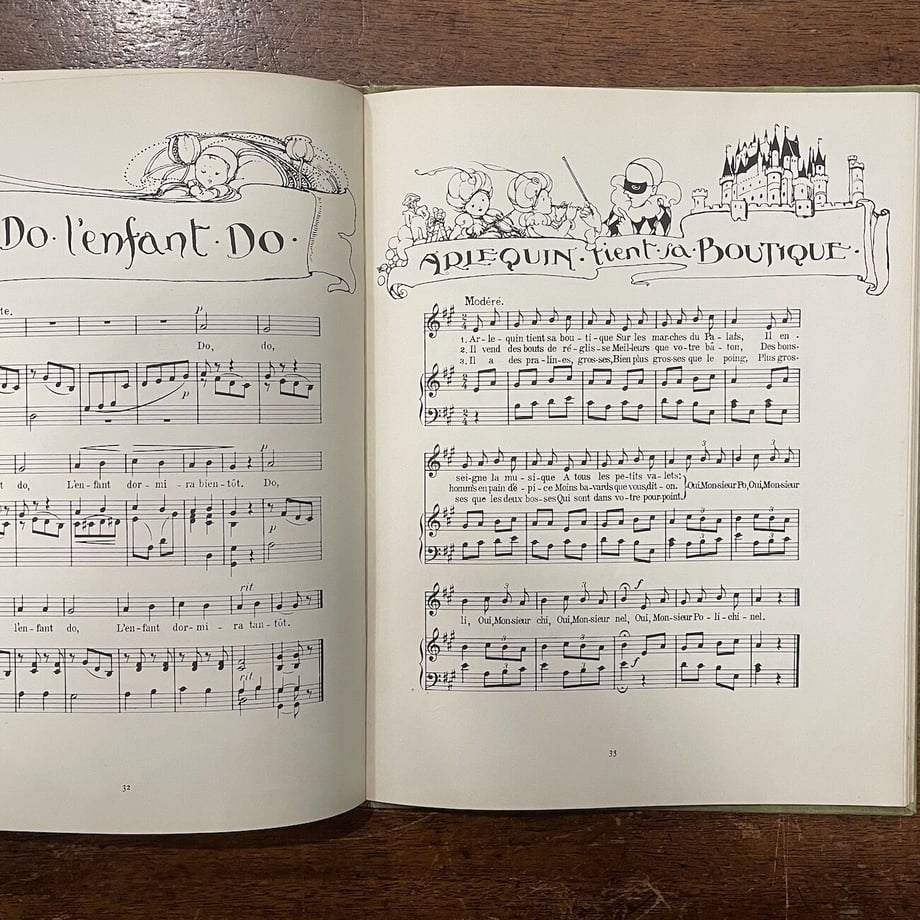 Do · l'enfant · Do ·
te.
p
Do, do,
p
p
t do, L'en-fant do-r-mi-ra bien-tôt. Do,
p
rit
l'en-fant do, L'en-fant dor-mi-ra tan-tôt.
rit
32
ARLEQUIN · tient · sa · BOUTIQUE ·
Modéré.
1. Ar-le-quin tient sa bou-ti-que Sur les mar-ches du Pa-lais, Il en-
2. Il vend des bouts de ré-glis-se Meil-leurs que vo-tre bâ-ton, Des bons-
3. Il a des pra-lin-es, gros-ses, Bien plus gros-ses que le poing, Plus gros-
3 3
sei-gne la mu-si-que A tous les pe-tits va-lets:
homm's en pain d'é-pi-ce Moins ba-vards que vous, dit-on.
ses que les deux bos-ses Qui sont dans vo-tre pour-point.
Oui, Monsieur Po, Oui, Monsieur
3 3 f
li, Oui, Mon-sieur chi, Oui, Mon-sieur nel, Oui, Mon-sieur Po-li-chi-nel.
3 3
f
33